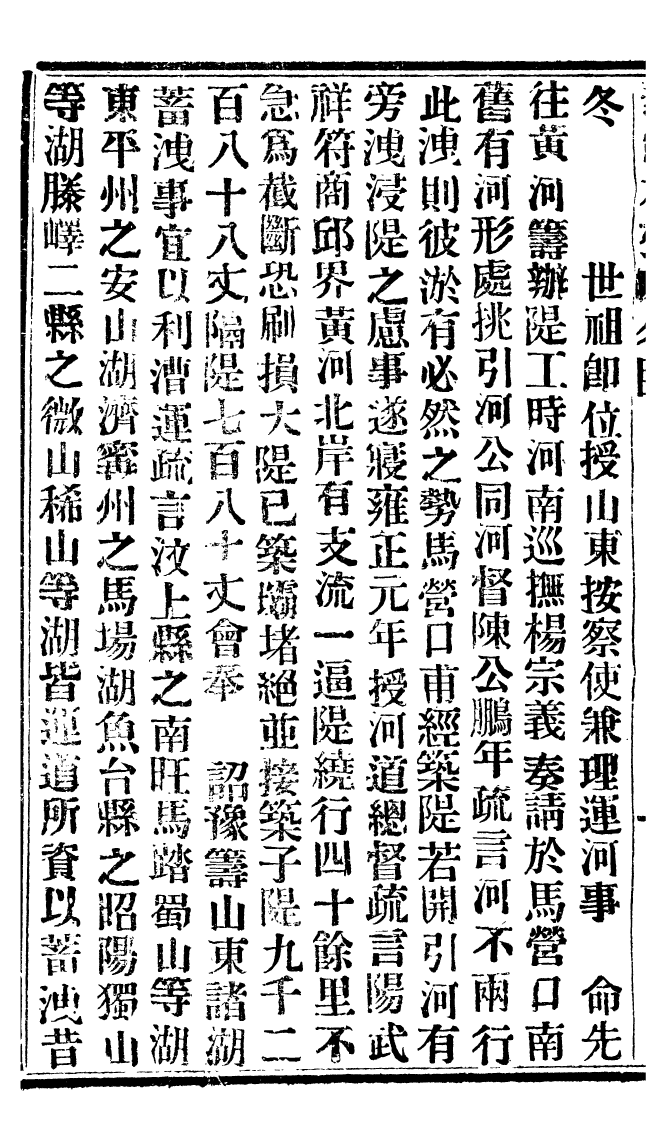 冬　　世祖卽位授山東按察使兼理運河事　命先
往黃河籌辦隄工時河南巡撫楊宗義奏請於馬營口南
舊有河形處挑引河公同河督陳公鵬年疏言河不兩行
此洩則彼淤有必然之勢馬營口甫經築隄若開引河有
旁洩浸隄之慮事遂寢雍正元年授河道總督疏言陽武
祥符商邱界黃河北岸有支流一逼隄繞行四十餘里不
急爲截斷恐刷損大隄已築壩堵絕並接築子隄九千二
百八十八丈隔隄七百八十丈會奉　詔豫籌山東諸湖
蓄洩事宜以利漕運疏言汶上縣之南旺馬踏蜀山等湖
東平州之安山湖濟甯州之馬場湖魚台縣之昭陽獨山
等湖滕嶧二縣之微山稀山等湖皆運道所資以蓄洩昔